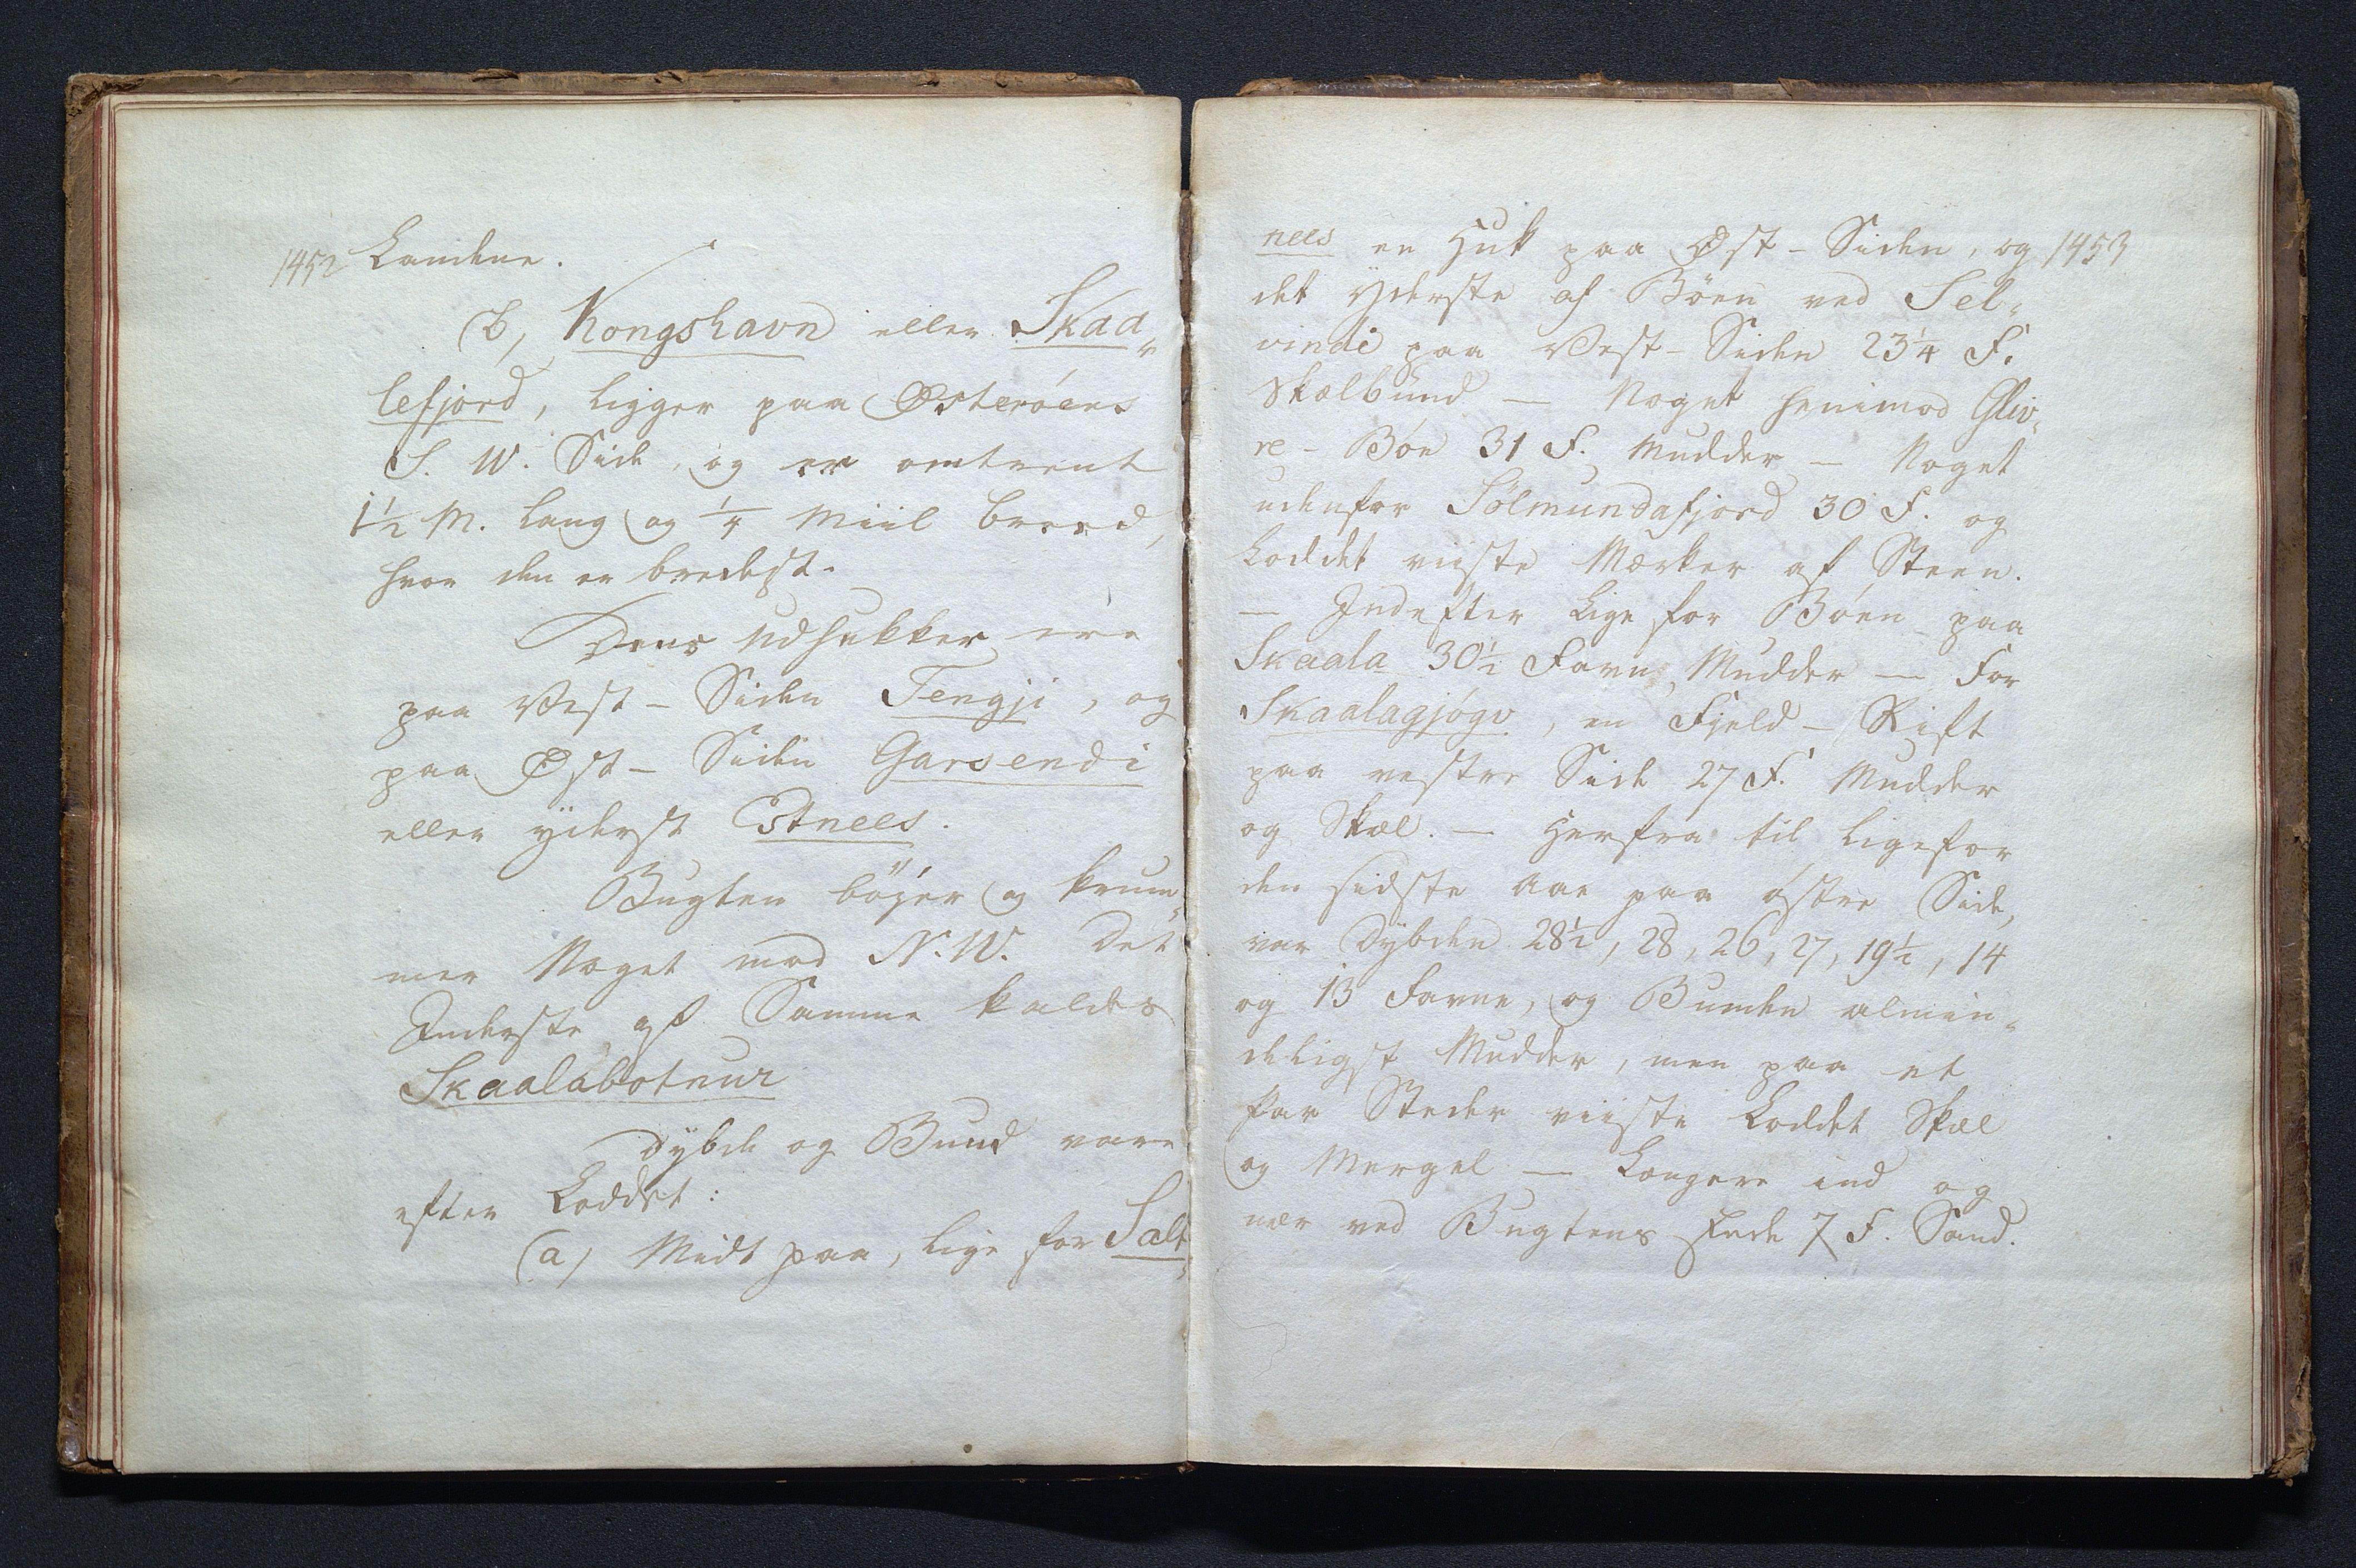 1452 Landene.
(b, Kongshavn eller Skaa„
lefjord, ligger paa Østerøens
S. W. Side, og er omtrent
1½ M. lang og ¼ Miil breed,
hvor den er bredest.
Dens Udhukker ere
paa Vest-Siden Tengji, og
paa Øst-Siden Garsendi
eller yderst Estnees.
Bugten bøjer og krum„
mer Noget mod N.W. Det
Inderste af Samme kaldes
Skaalabotnur
Dybde og Bund vare
efter Loddet:
(a) Midt paa, lige for Salt„
nees en Huk paa Øst-Siden, og 1453
det Yderste af Böen ved Sel„
vindi paa Vest-Siden 23¼ F.
Skælbund — Noget henimod Gliv„
re-Böe 31 F. Mudder — Noget
udenfor Sölmundafjord 30 F. og
Loddet viiste Mærker af Steen.
— Indefter lige for Böen paa
Skaala 30½ Favn, Mudder — For
Skaalagjógv, en Fjeld-Rift
paa vestre Side 27 F. Mudder
og Skæl. — Herfra til ligefor
den sidste Aae paa östre Side,
var Dybden 28½, 28, 26, 27, 19½, 14
og 13 Favne, og Bunden almin„
deligst Mudder, men paa et
Par Steder viiste Loddet Skæl
og Mergel — Længere ind og
nær ved Bugtens Ende 7 F. Sand.